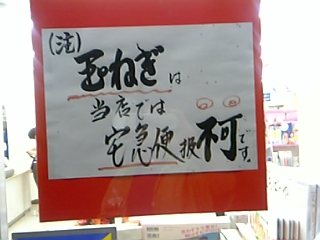 (注)
玉ねぎは
当店では
宅急便扱可です。